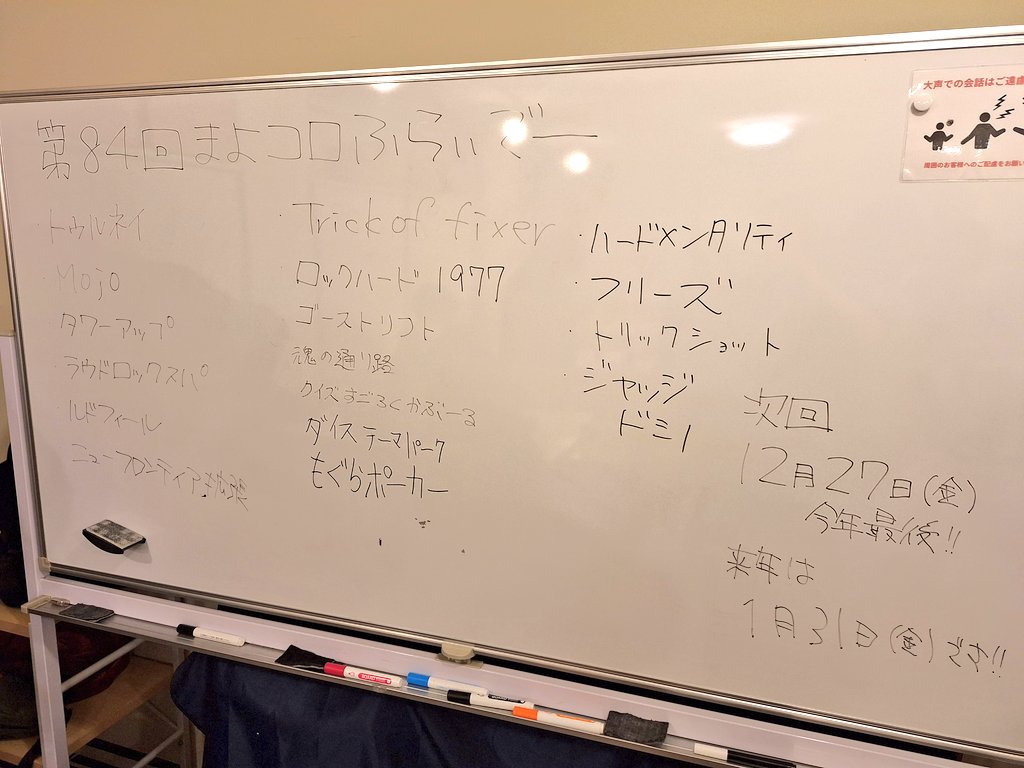 第84回まよコロふらいでー
トゥルネイ
Mojo
タワーアップ
ラウドロックスパ
ルドフィール
ニューフロンティア拡張
Trick of fixer
ロックハード 1977
ゴーストリフト
魂の通り路
クイズすごろくかぶーる
ダイステーマパーク
もぐらポーカー
・ハードメンタリティ
・フリーズ
・トリックショット
・ジャッジ
ドミノ
次回
12月27日(金)
今年最後!!
来年は
1月31日(金)です!!
大声での会話はご遠慮
周囲のお客様へのご配慮をお願い